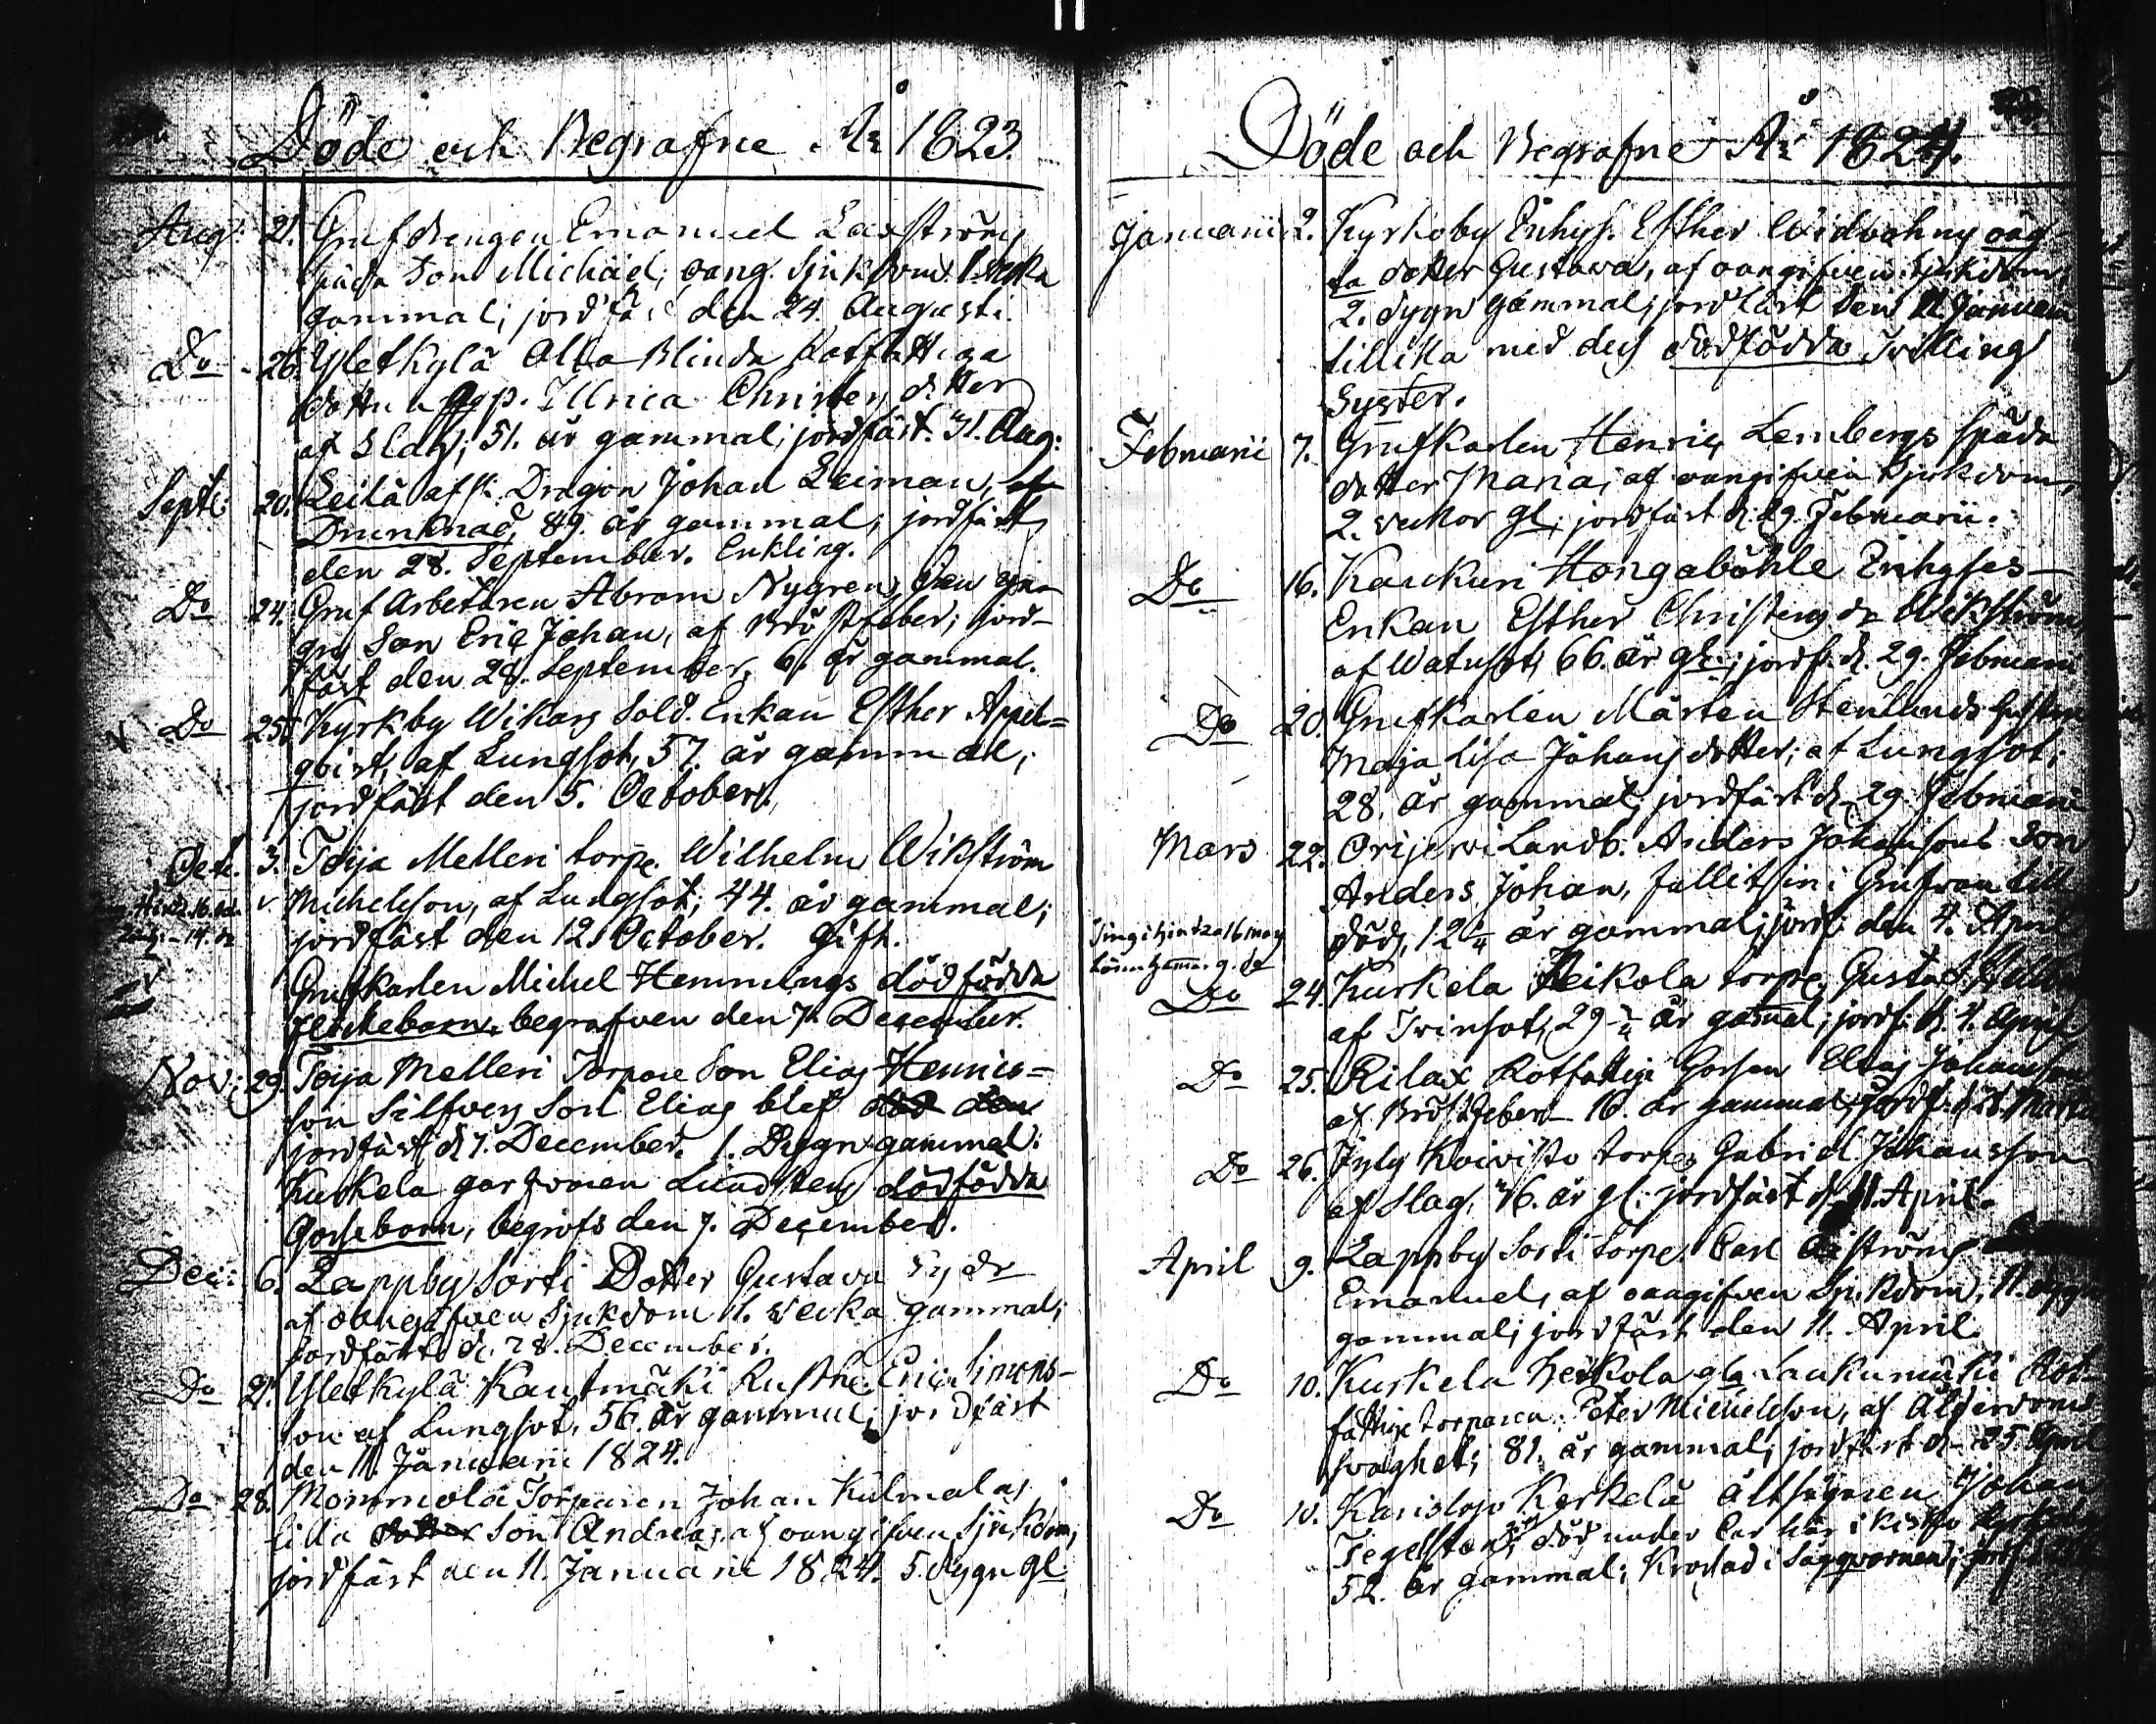 Döde och Begrafne År 1823.
Aug: 21. Grufdrengen Emanuel Laxströms
späda Son Michäel, oang. sjukdom 1. veka
gammal; jordfäst den 24. Augusti.
Do 26. Yletkylä Alla Blinda Rotfattiga
Ullrica Christersdotter
af Slag; 51. år gammal; jordfäst. 31. Aug:
Septe: 20. Leilä afsk. Dragon Johan Leiman,
Drunknad, 89. år gammal; jordfäst
den 28. September. Enkling.
Do 24. Gruf Arbetaren Abram Nygrens
Son Eric Johan, af Bröstfeber; jord-
fäst den 28. September, 6. år gammal.
Do 25. Kyrkby Wikars Sold. Enkan Esther Appel=
qvist, af Lungsot, 57. år gammal;
jordfäst den 5. October.
Oct. 3. Toija Melleri torpe. Wilhelm Wikström
Michelsson, af Lungsot; 44. år gammal;
jordfäst den 12. October. Gift.
Grufkarlen Michel Hemmings dödfödda
flickebarn, begrafven den 7. December.
Nov: 29. Toija Melleri Torpare Son Elias Henrics=
son Silfvers Son Elias blef död den
jordfäst d. 7. December. 1. Dygn gammal.
Kurkela garfvaren Lindstens dödfödda
Gosseborn, begrofs den 7. December.
Dec: 6. Lappby Sorti Dotter Gustava
af oangifven Sjukdom 1. vecka gammal;
jordfäst d. 28. December.
Do 21. Yletkylä Kautmäki Rusth. Eric Simons-
son af Lungsot, 56. år gammal; jordfäst
den 11. Januarii 1824.
Do 28. Mommola Torparen Johan Kulmalas
lilla dotter Son Andreas, af oangifven sjukdom;
jordfäst den 11. Januarii 1824. 5. dygn gl.
Döde och Begrafne År 1824.
Januarii 2. Kyrkoby Enhys. Esther Widbohms oäg-
ta dotter Gustava, af oangifven sjukdom,
2. dygn gammal; jordfäst den 11. Januarii
tillika med dess dödfödda Tvilling
Syster.
Februarii 7. Grufkarlen Henric Lembergs späda
dotter Maria; af oangifven sjukdom,
2. veckor gl; jordfäst d. 29. Februarii.
Do 16. Kaukuri Hongaböhle Enhyses-
Enkan Esther Christens dr Wikström
af Watusot, 66. år gl.; jordf. d. 29. Februarii
Do 20. Grufkarlen Mårten Stenlunds hustru
Maja Lisa Johans dotter; af Lungsot;
28. år gammal; jordfäst d. 29. Februarii
Mars 22. Orijerwi Landb. Anders Johanssons Son
Anders Johan, fallit in i Grufvan till
död, 12 1/4 år gammal; jordf. den 4. April
Ting i
Do 24. Kurkela Heikola torpe. Gustaf
af Tvinsot, 29 år gammal; jordf. d. 4. April
Do 25. Rilax Rotfattige Gossen Elias Johansson
af Bröstfeber 16. år gammal; jordf. d. 28. Martii
Do 26. Jyly Koivisto torpe Gabriel Johansson
af Slag. 46. år gl: jordfäst d. 11. April.
April 9. Lappby Sorti torpe. Carl
Emanuel, af oangifven Sjukdom, 11. dygn
gammal; jordfäst den 11. April.
Do 10. Kurkela Heikola gla Laukumäki Rot-
fattige torparen Peter Michelsson, af Ålderdoms
svaghet; 81. år gammal; jordfäst d. 25. April
Do 10. Karislojo Kerkelä ältsågaren Johan
Tegelsten, död under här i Kisko
52. år gammal; Krossad i Sågqvarnen;